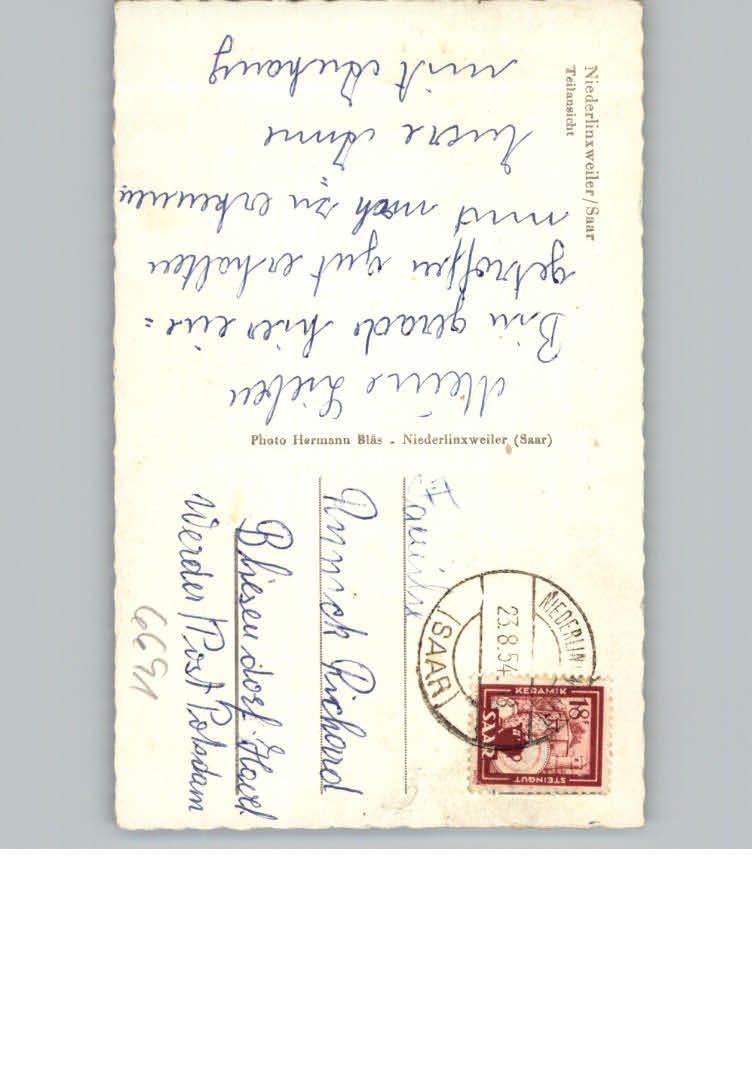 Niederlinxweiler/Saar
Teilansicht
Meine Lieben
Bin gerade hier ein=
getroffen gut erhalten
und noch zu erkennen
Eure Anne
mit Anhang
Photo Hermann Bläs - Niederlinxweiler (Saar)
Familie
Richard
Bliesendorf Havel
Werder/Post Potsdam
6691
NIEDERLIN
(SAAR)
23.8.54
18F
KERAMIK
SAAR
STEINGUT